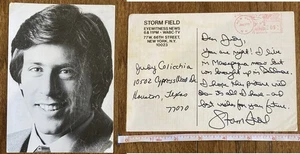 STORM FIELD
EYEWITNESS NEWS
6 & 11 PM - WABC-TV
77 W. 66TH STREET,
NEW YORK, N.Y.
10023
Judy Colicchia
10502 Cypresswood Dr.
Houston, Texas
77070
Dear Judy
You are right! I live
in Massapequa now but
was brought up in Baldwin.
I hope this picture will
have
and
best wishes for your future.
Storm Field